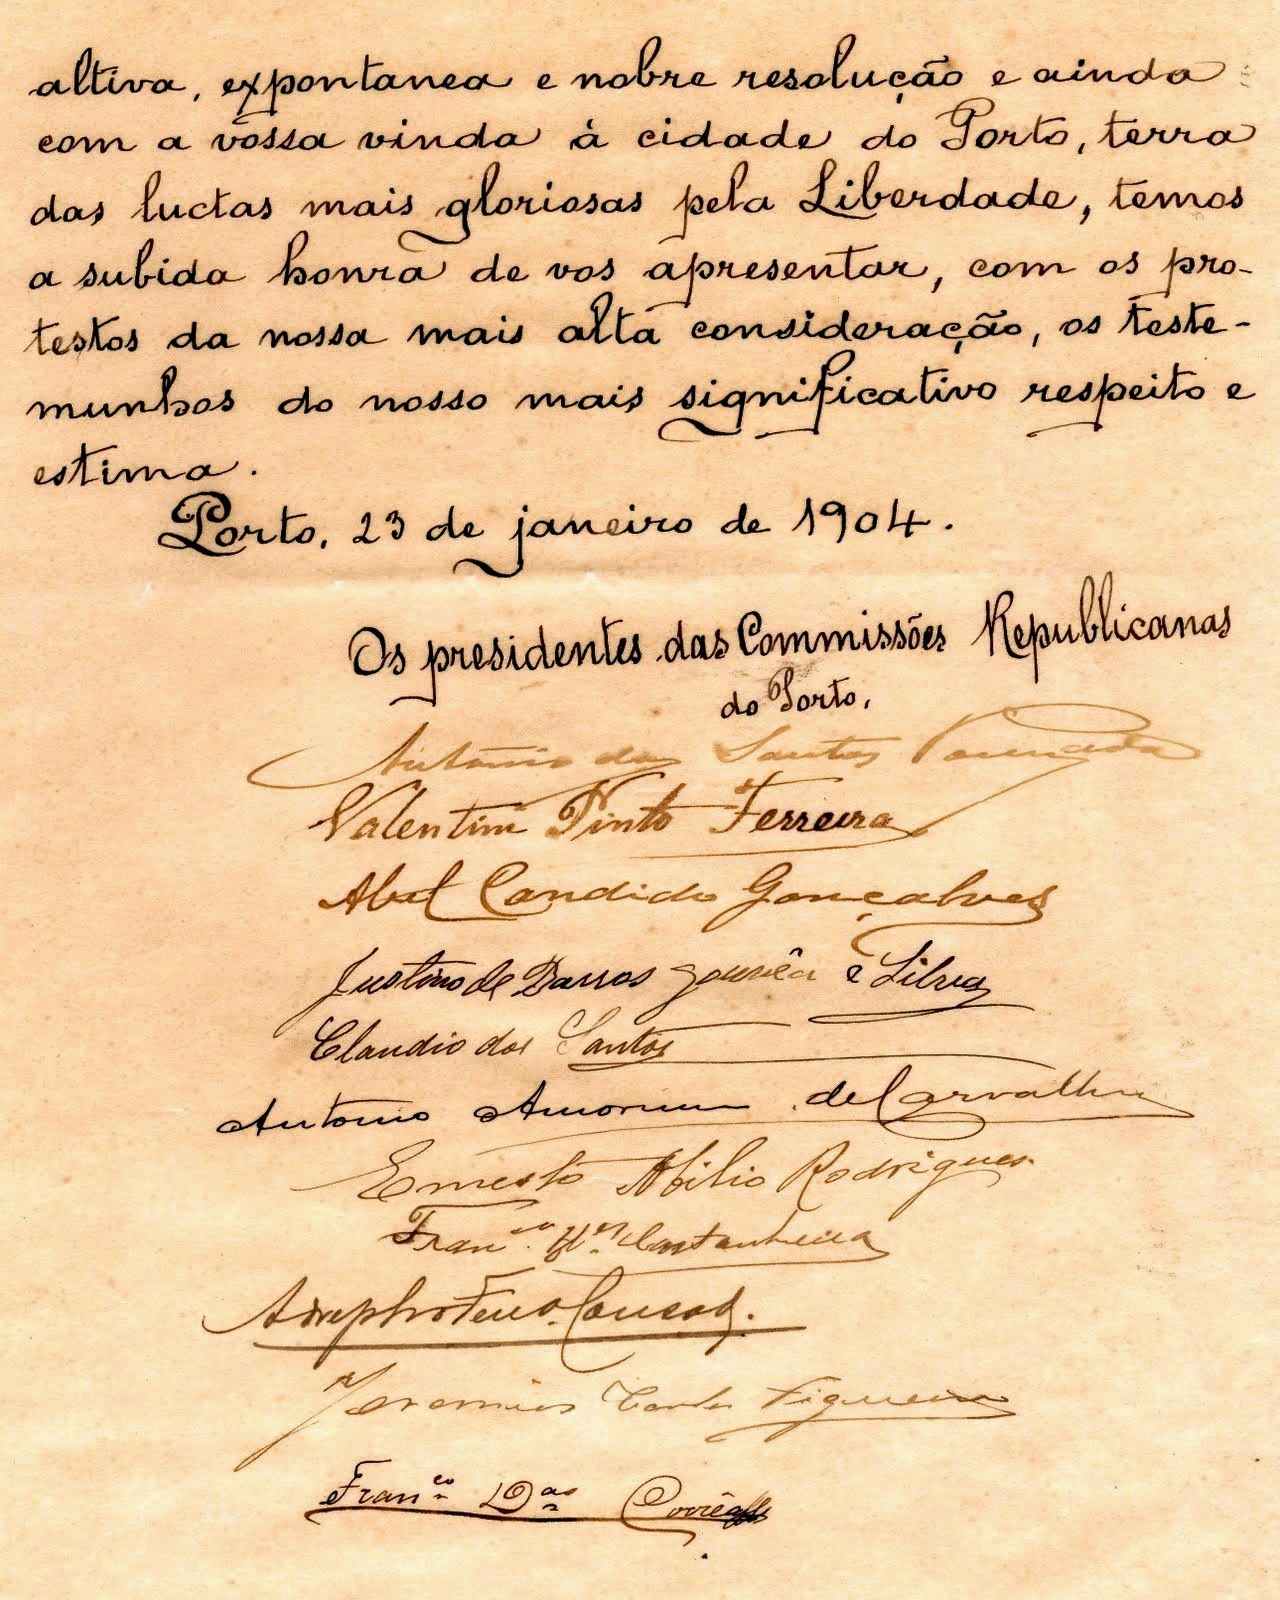 altiva, expontanea e nobre resolução e ainda
com a vossa vinda á cidade do Porto, terra
das luctas mais gloriosas pela Liberdade, temos
a subida honra de vos apresentar, com os pro-
testos da nossa mais alta consideração, os teste-
munhos do nosso mais significativo respeito e
estima.
Porto, 23 de janeiro de 1904.
Os presidentes das Commissões Republicanas
do Porto,
Antonio dos Santos Pousada
Valentim Pinto Ferreira
Abel Candido Gonçalves
Justino de Barros Gouvêa e Silva
Claudio dos Santos
Antonio Amorim de Carvalho
Ernesto Abilio Rodrigues
Fran.co Castanheira
Jeremias Figueira
Fran.co D.as Corrêa